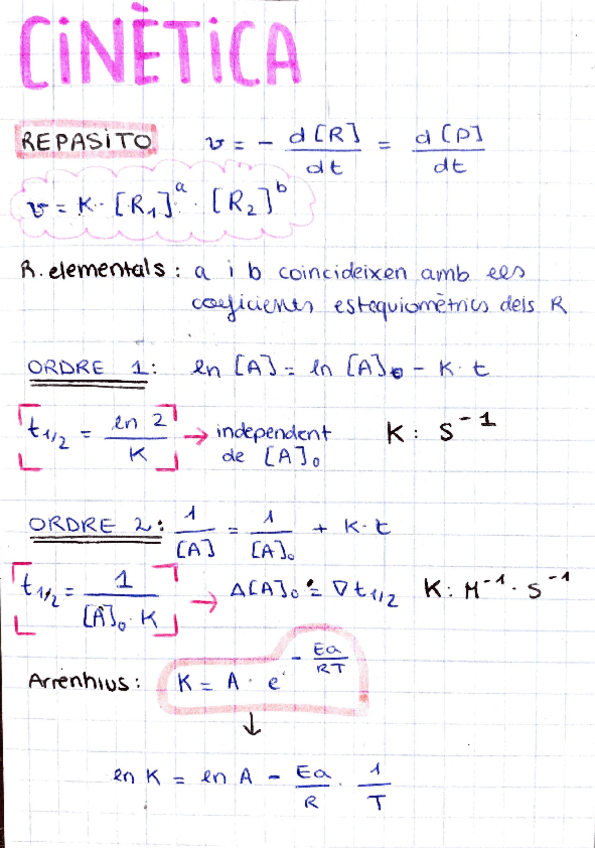 CINÈTICA
REPASITO v = - d[R]/dt = d[P]/dt
v = K · [R₁]ᵃ · [R₂]ᵇ
R. elementals: a i b coincideixen amb els
coeficients estequiomètrics dels R
ORDRE 1: ln [A] = ln [A]₀ - K · t
t₁/₂ = ln 2/K → independent K: s⁻¹
de [A]₀
ORDRE 2: 1/[A] = 1/[A]₀ + K · t
t₁/₂ = 1/[A]₀ · K → Δ[A]₀ = ∇t₁/₂ K: M⁻¹ · s⁻¹
Arrènhius: K = A · e^(-Ea/RT)
↓
ln K = ln A - Ea/R · 1/T